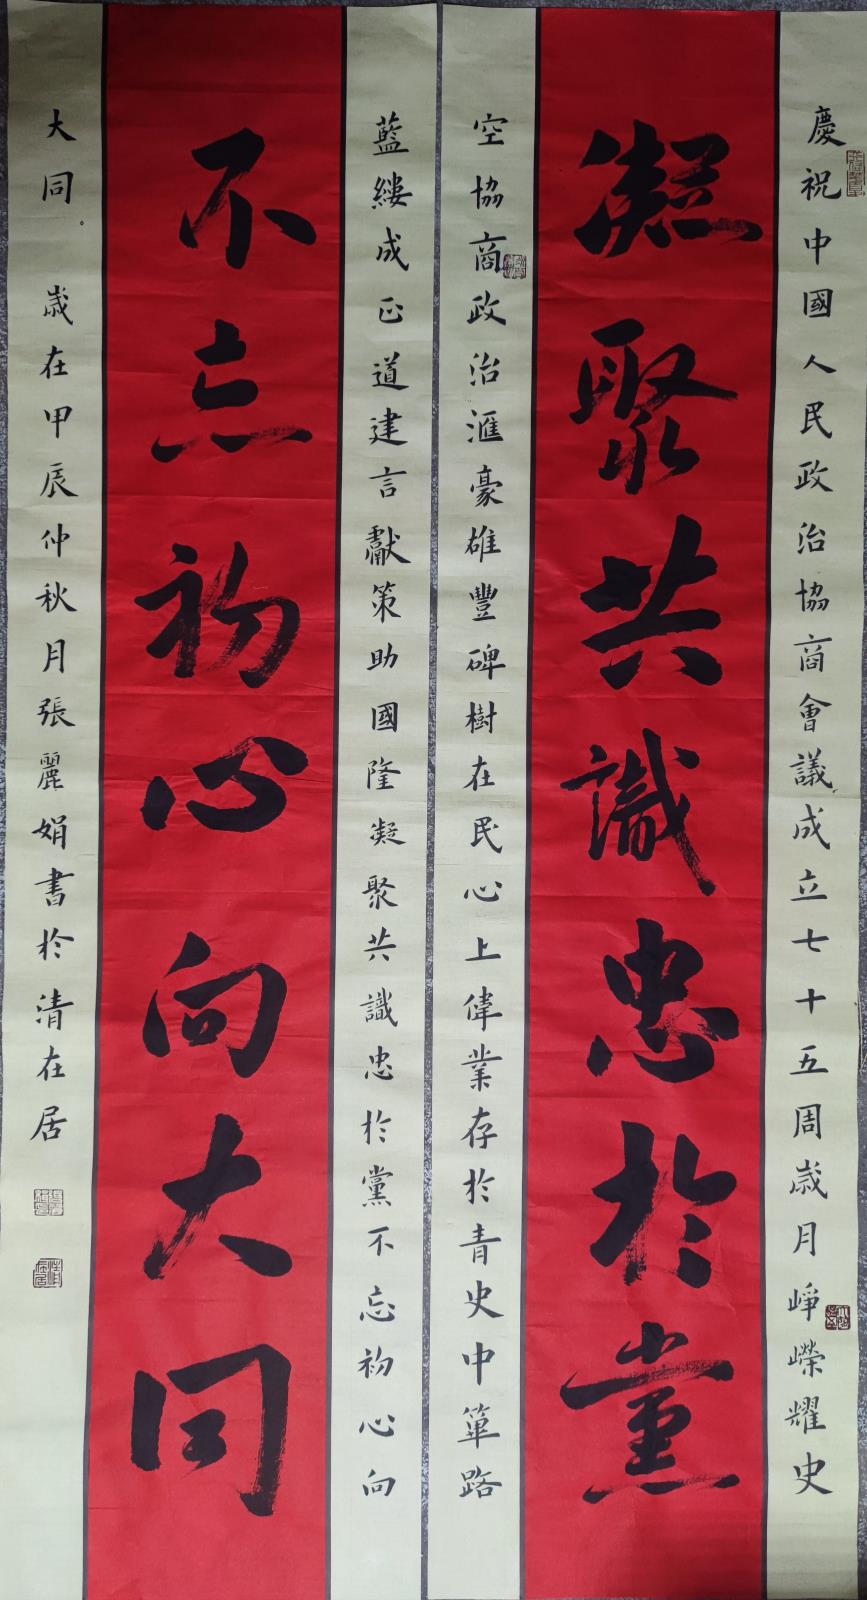 慶祝中國人民政治協商會議成立七十五周歲月崢嶸耀史
凝聚共識忠於黨
空協商政治滙豪雄豐碑樹在民心上偉業存於青史中篳路
藍縷成正道建言獻策助國隆凝聚共識忠於黨不忘初心向
不忘初心向大同
大同 歲在甲辰仲秋月張麗娟書於清在居